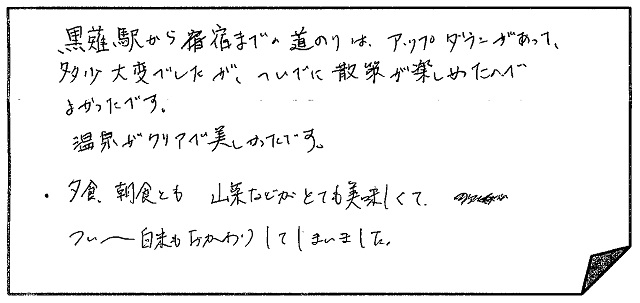 黒薙駅から宿宿までの道のりは、アップダウンがあって、
多少大変でしたが、ついでに散策が楽しめたので
よかったです。
温泉がクリアで美しかったです。
・夕食、朝食とも 山菜などがとても美味しくて、
つい〜白米もおかわりしてしまいました。